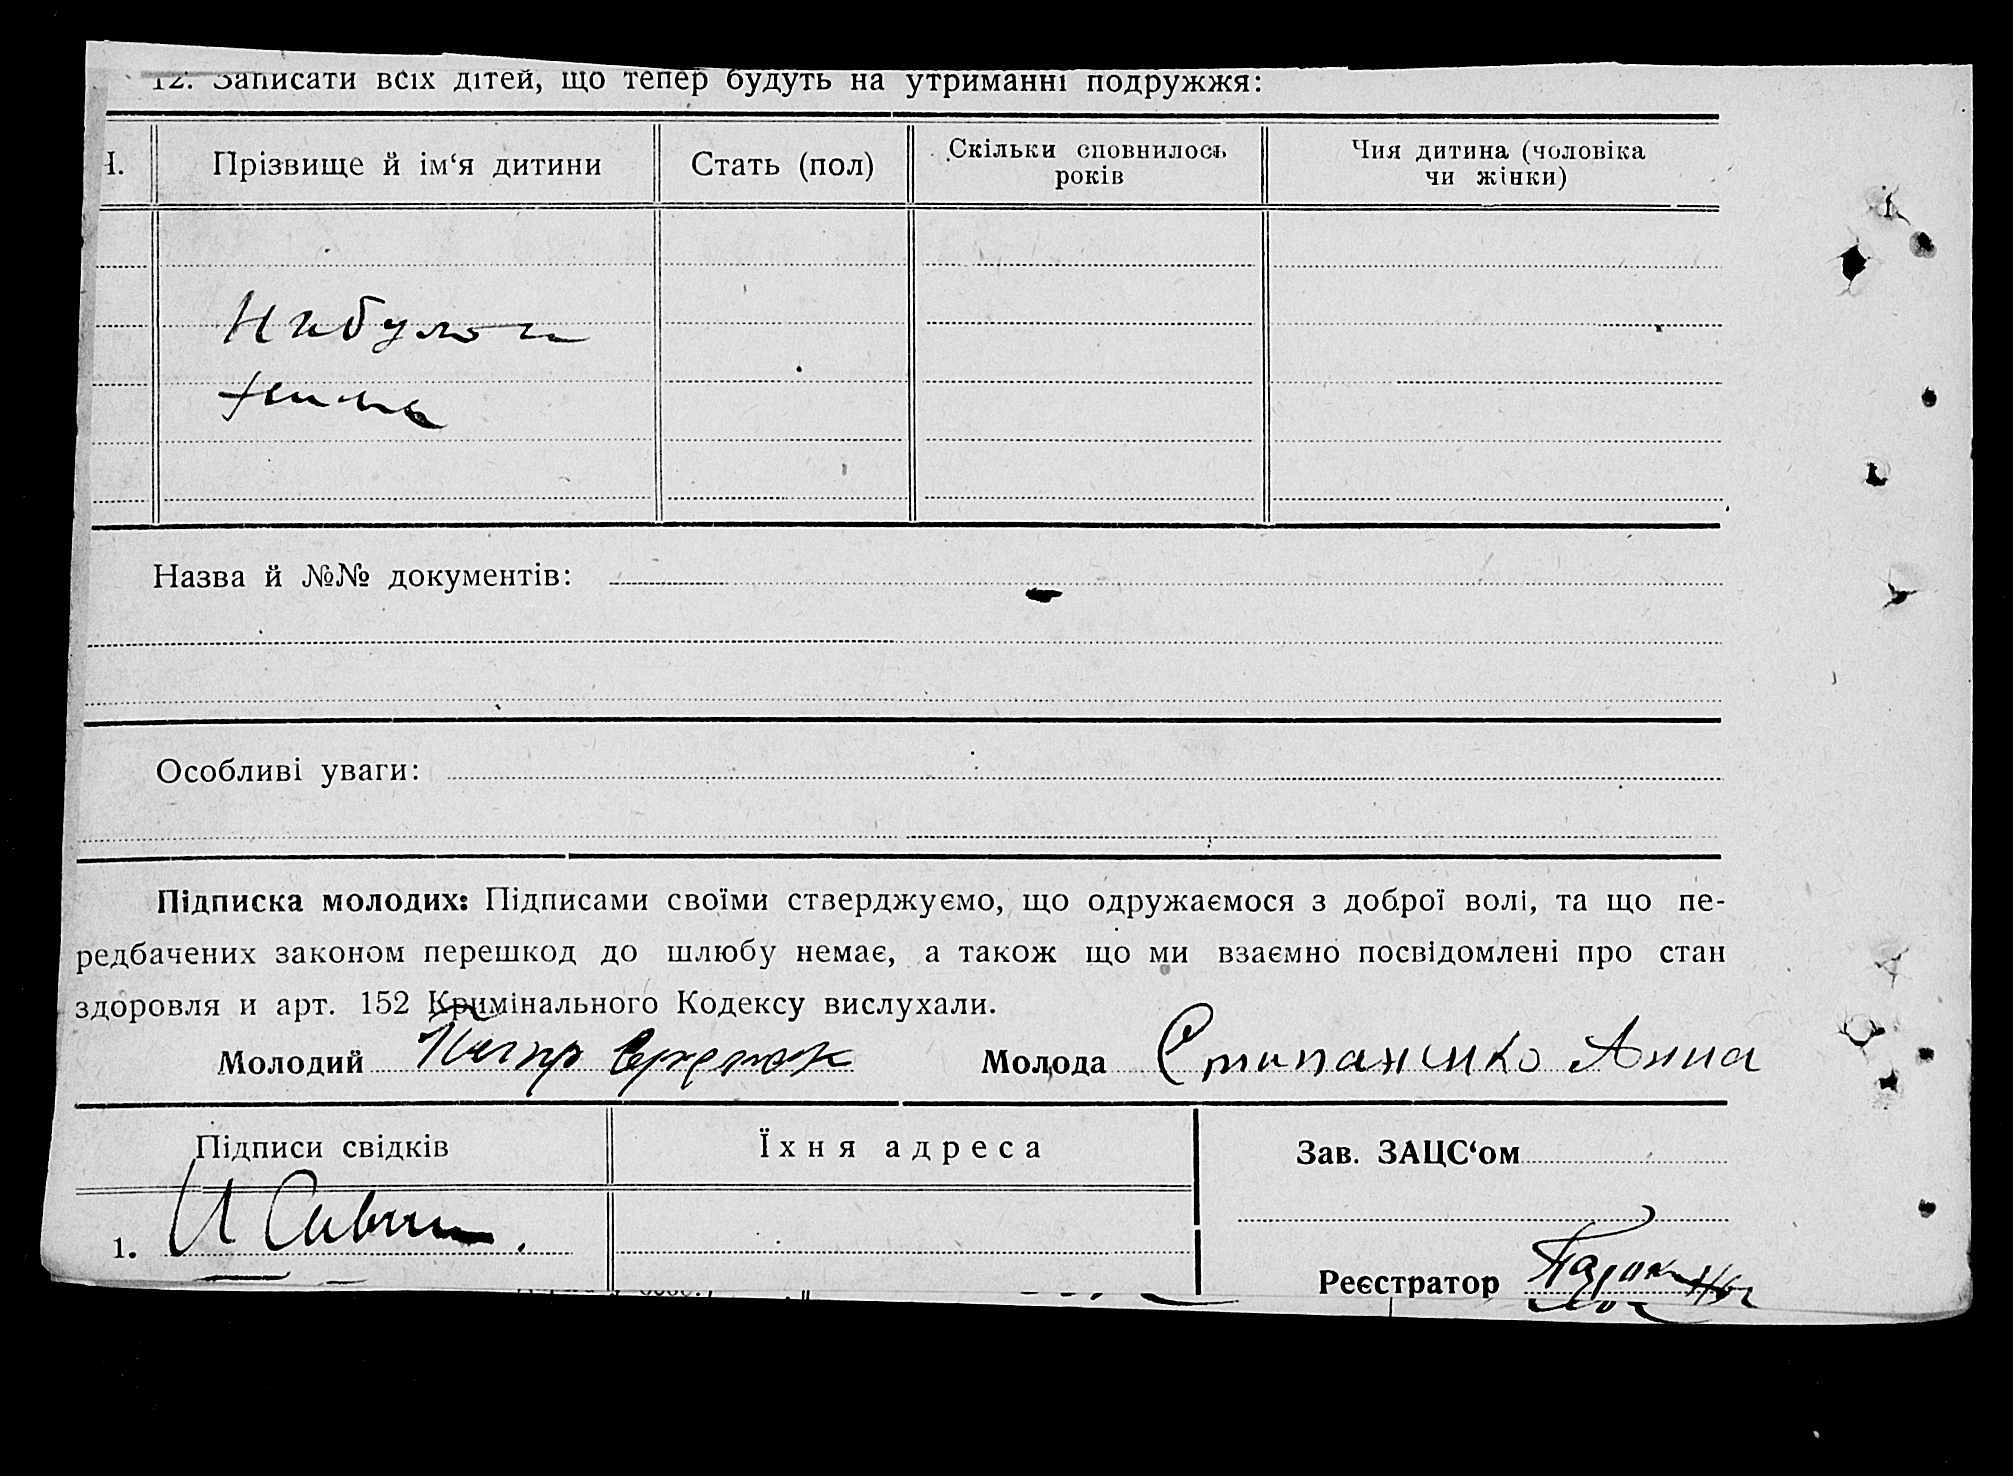 12. Записати всіх дітей, що тепер будуть на утриманні подружжя:
Ч. Прізвище й ім‘я дитини Стать (пол) Скільки сповнилось років Чия дитина (чоловіка чи жінки)
Назва й №№ документів:
Особливі уваги:
Підписка молодих: Підписами своїми стверджуємо, що одружаємося з доброї волі, та що пе-
редбачених законом перешкод до шлюбу немає, а також що ми взаємно посвідомлені про стан
здоровля и арт. 152 Кримінального Кодексу вислухали.
Молодий Молода Степаненко Анна
Підписи свідків Їхня адреса Зав. ЗАЦС‘ом
1.
Реєстратор